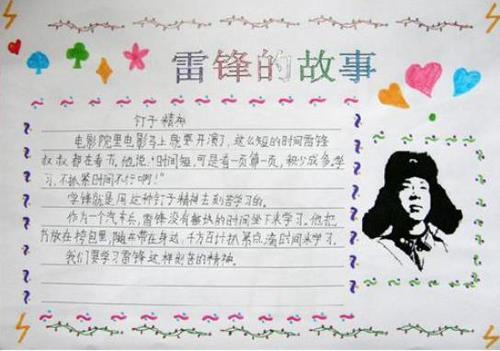 雷锋的故事
钉子精神
电影院里电影马上就要开演了,这么短的时间雷锋
叔叔都在看书。他说:"时间短,可是看一页算一页,积少成多,学
习,不抓紧时间不行啊!"
雷锋就是用这种钉子精神去刻苦学习的。
作为一个汽车兵,雷锋没有整块的时间坐下来学习。他把
书放在挎包里,随身带在身边,千方百计抓紧点滴时间来学习。
我们要学习雷锋这样刻苦的精神。